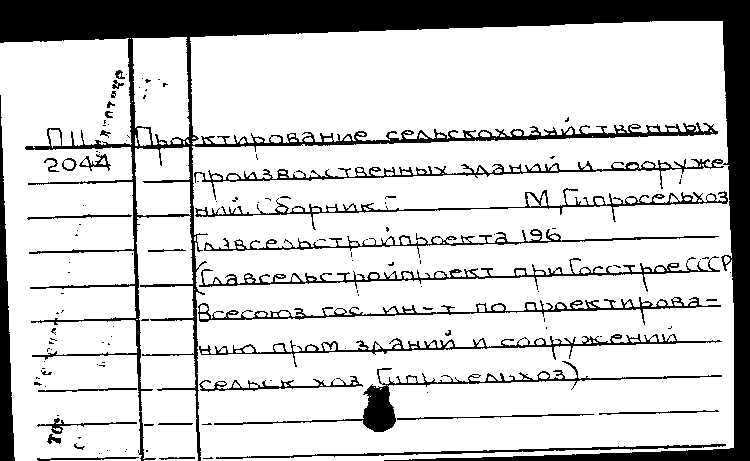 П11 Проектирование сельскохозяйственных
2044 производственных зданий и сооруже-
ний. Сборник М, Гипросельхоз
Главсельстройпроекта, 196
(Главсельстройпроект при Госстрое СССР
Всесоюз гос. ин-т по проектирова-
нию пром. зданий и сооружений
сельск хоз Гипросельхоз).